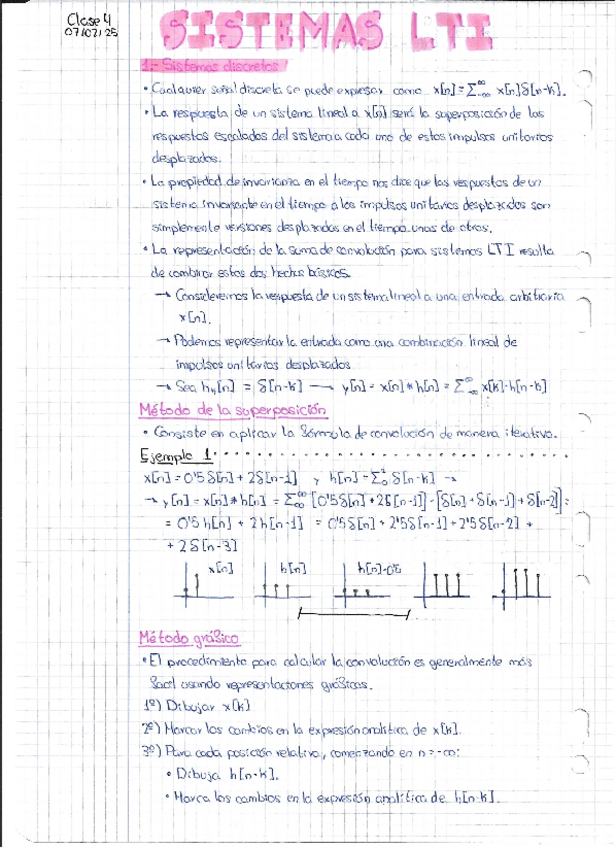 Clase 4
07/07/25
SISTEMAS LTI
1.- Sistemas discretos
• Cualquier señal discreta se puede expresar como x[n]=∑_{-∞}^{∞} x[n]δ[n-k].
• La respuesta de un sistema lineal a x[n] será la superposición de las
respuestas escaladas del sistema a cada uno de estos impulsos unitarios
desplazados.
• La propiedad de invarianza en el tiempo nos dice que las respuestas de un
sistema invariante en el tiempo a los impulsos unitarios desplazados son
simplemente versiones desplazadas en el tiempo unas de otras.
• La representación de la suma de convolución para sistemas LTI resulta
de combinar estos dos hechos básicos.
→ Consideremos la respuesta de un sistema lineal a una entrada arbitraria
x[n].
→ Podemos representar la entrada como una combinación lineal de
impulsos unitarios desplazados
→ Sea hₖ[n] = δ[n-k] → y[n] = x[n]*h[n] = ∑_{-∞}^{∞} x[k]·h[n-k]
Método de la superposición
• Consiste en aplicar la fórmula de convolución de manera iterativa.
Ejemplo 1
x[n] = 0'5δ[n] + 2δ[n-1] y h[n] = ∑_{0}^{2} δ[n-k] →
→ y[n] = x[n]*h[n] = ∑_{-∞}^{∞} [0'5δ[n] + 2δ[n-1]]·[δ[n]+δ[n-1]+δ[n-2]] =
= 0'5 h[n] + 2h[n-1] = 0'5δ[n] + 2'5δ[n-1] + 2'5δ[n-2] +
+ 2δ[n-3]
x[n] h[n] h[n]·0'5
Método gráfico
• El procedimiento para calcular la convolución es generalmente más
fácil usando representaciones gráficas.
1º) Dibujar x[k]
2º) Marcar los cambios en la expresión analítica de x[k].
3º) Para cada posición relativa, comenzando en n=-∞:
• Dibuja h[n-k].
• Marca los cambios en la expresión analítica de h[n-k].